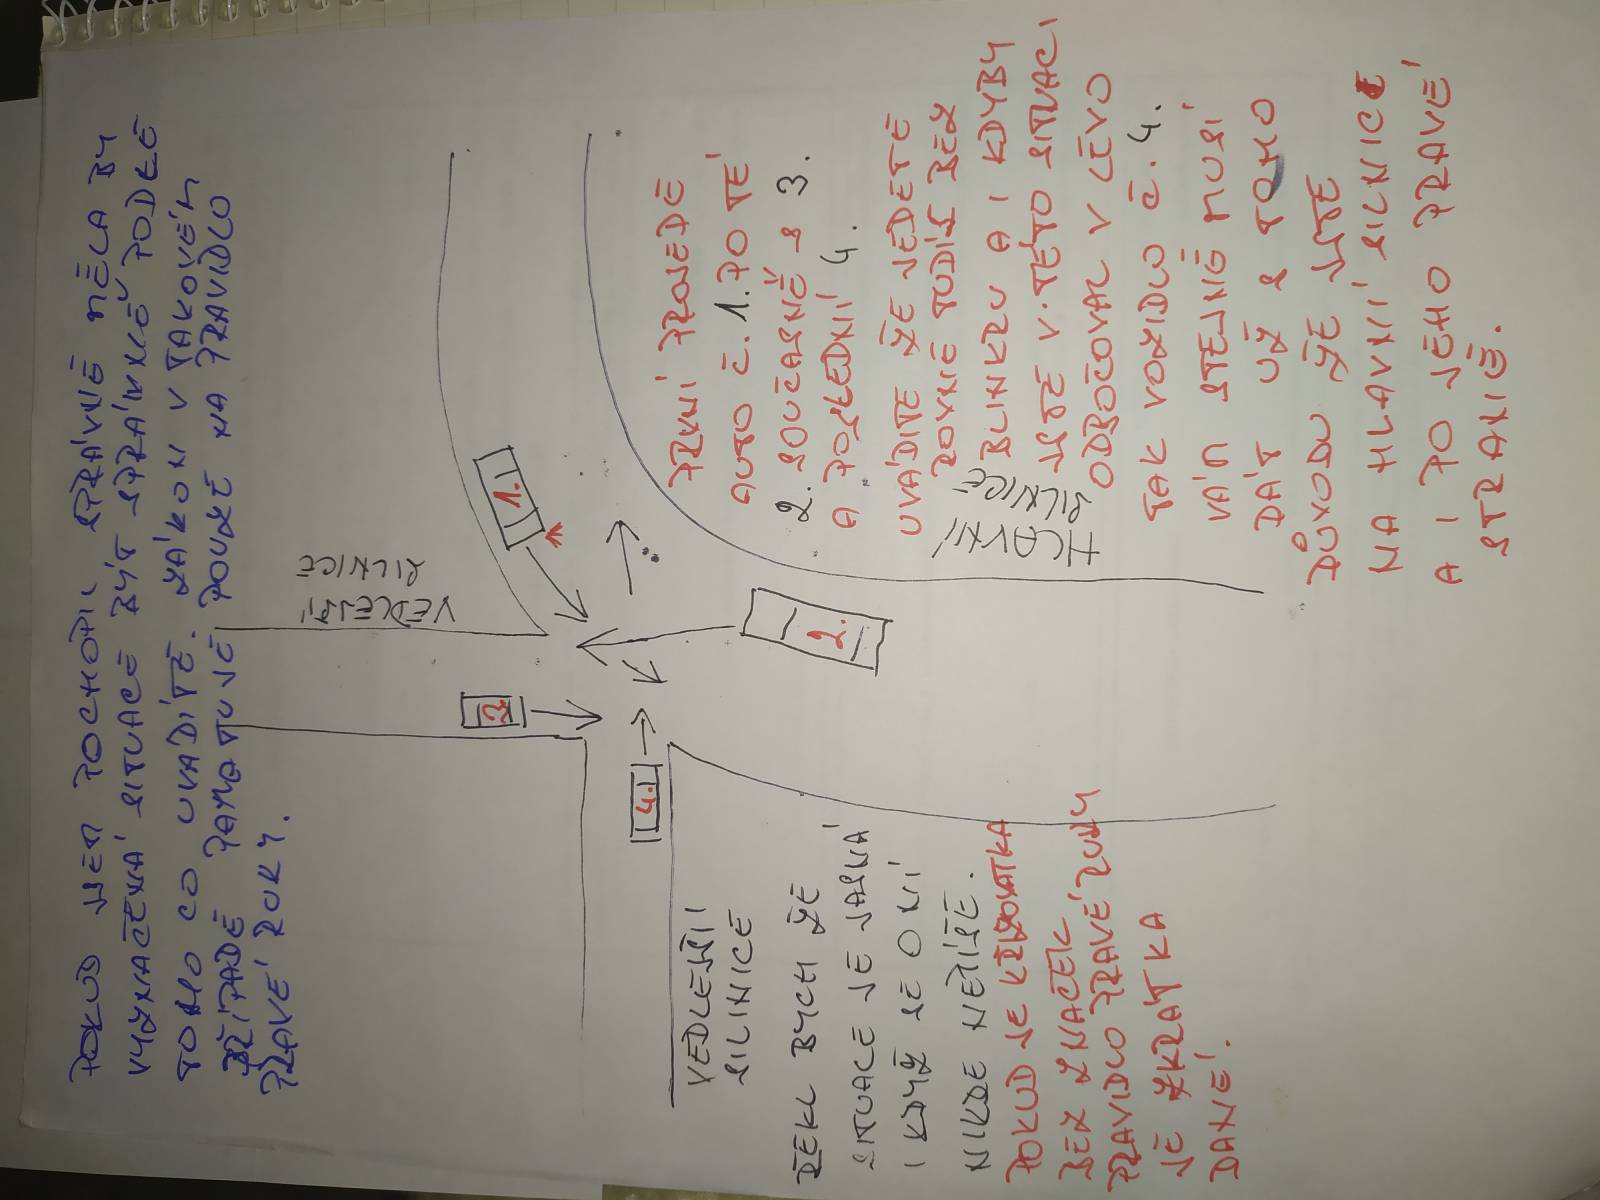 POKUD JSEM POCHOPIL SPRÁVNĚ MĚLA BY
VYZNAČENÁ SITUACE BÝT SPRÁVNĚ PODLE
TOHO CO UVÁDÍTE. ZÁKON V TAKOVÉM
PŘÍPADĚ PAMATUJE POUZE NA PRAVIDLO
PRAVÉ RUKY.
VEDLEJŠÍ
SILNICE
1.
3.
4.
2.
VEDLEJŠÍ
SILINICE
HLAVNÍ
SILNICE
ŘEKL BYCH ŽE
SITUACE JE JASNÁ
I KDYŽ SE O NÍ
NIKDE NEPÍŠE.
POKUD JE KŘIŽOVATKA
BEZ ZNAČEK
PRAVIDLO PRAVÉ RUKY
JE ZKRÁTKA
DANÉ.
PRVNÍ PROJEDE
AUTO Č. 1. POTÉ
2. SOUČASNĚ S 3.
A POSLEDNÍ 4.
UVÁDÍTE ŽE JEDETE
ROVNĚ TUDÍŠ BEZ
BLINKRU A I KDYBY
JSTE V TÉTO SITUACI
ODBOČOVAL V LEVO
TAK VOZIDLO Č. 4.
VÁM STEJNĚ MUSÍ
DÁT UŽ S TOHO
DŮVODU ŽE JSTE
NA HLAVNÍ SILNICE
A I PO JEHO PRAVÉ
STRANĚ.